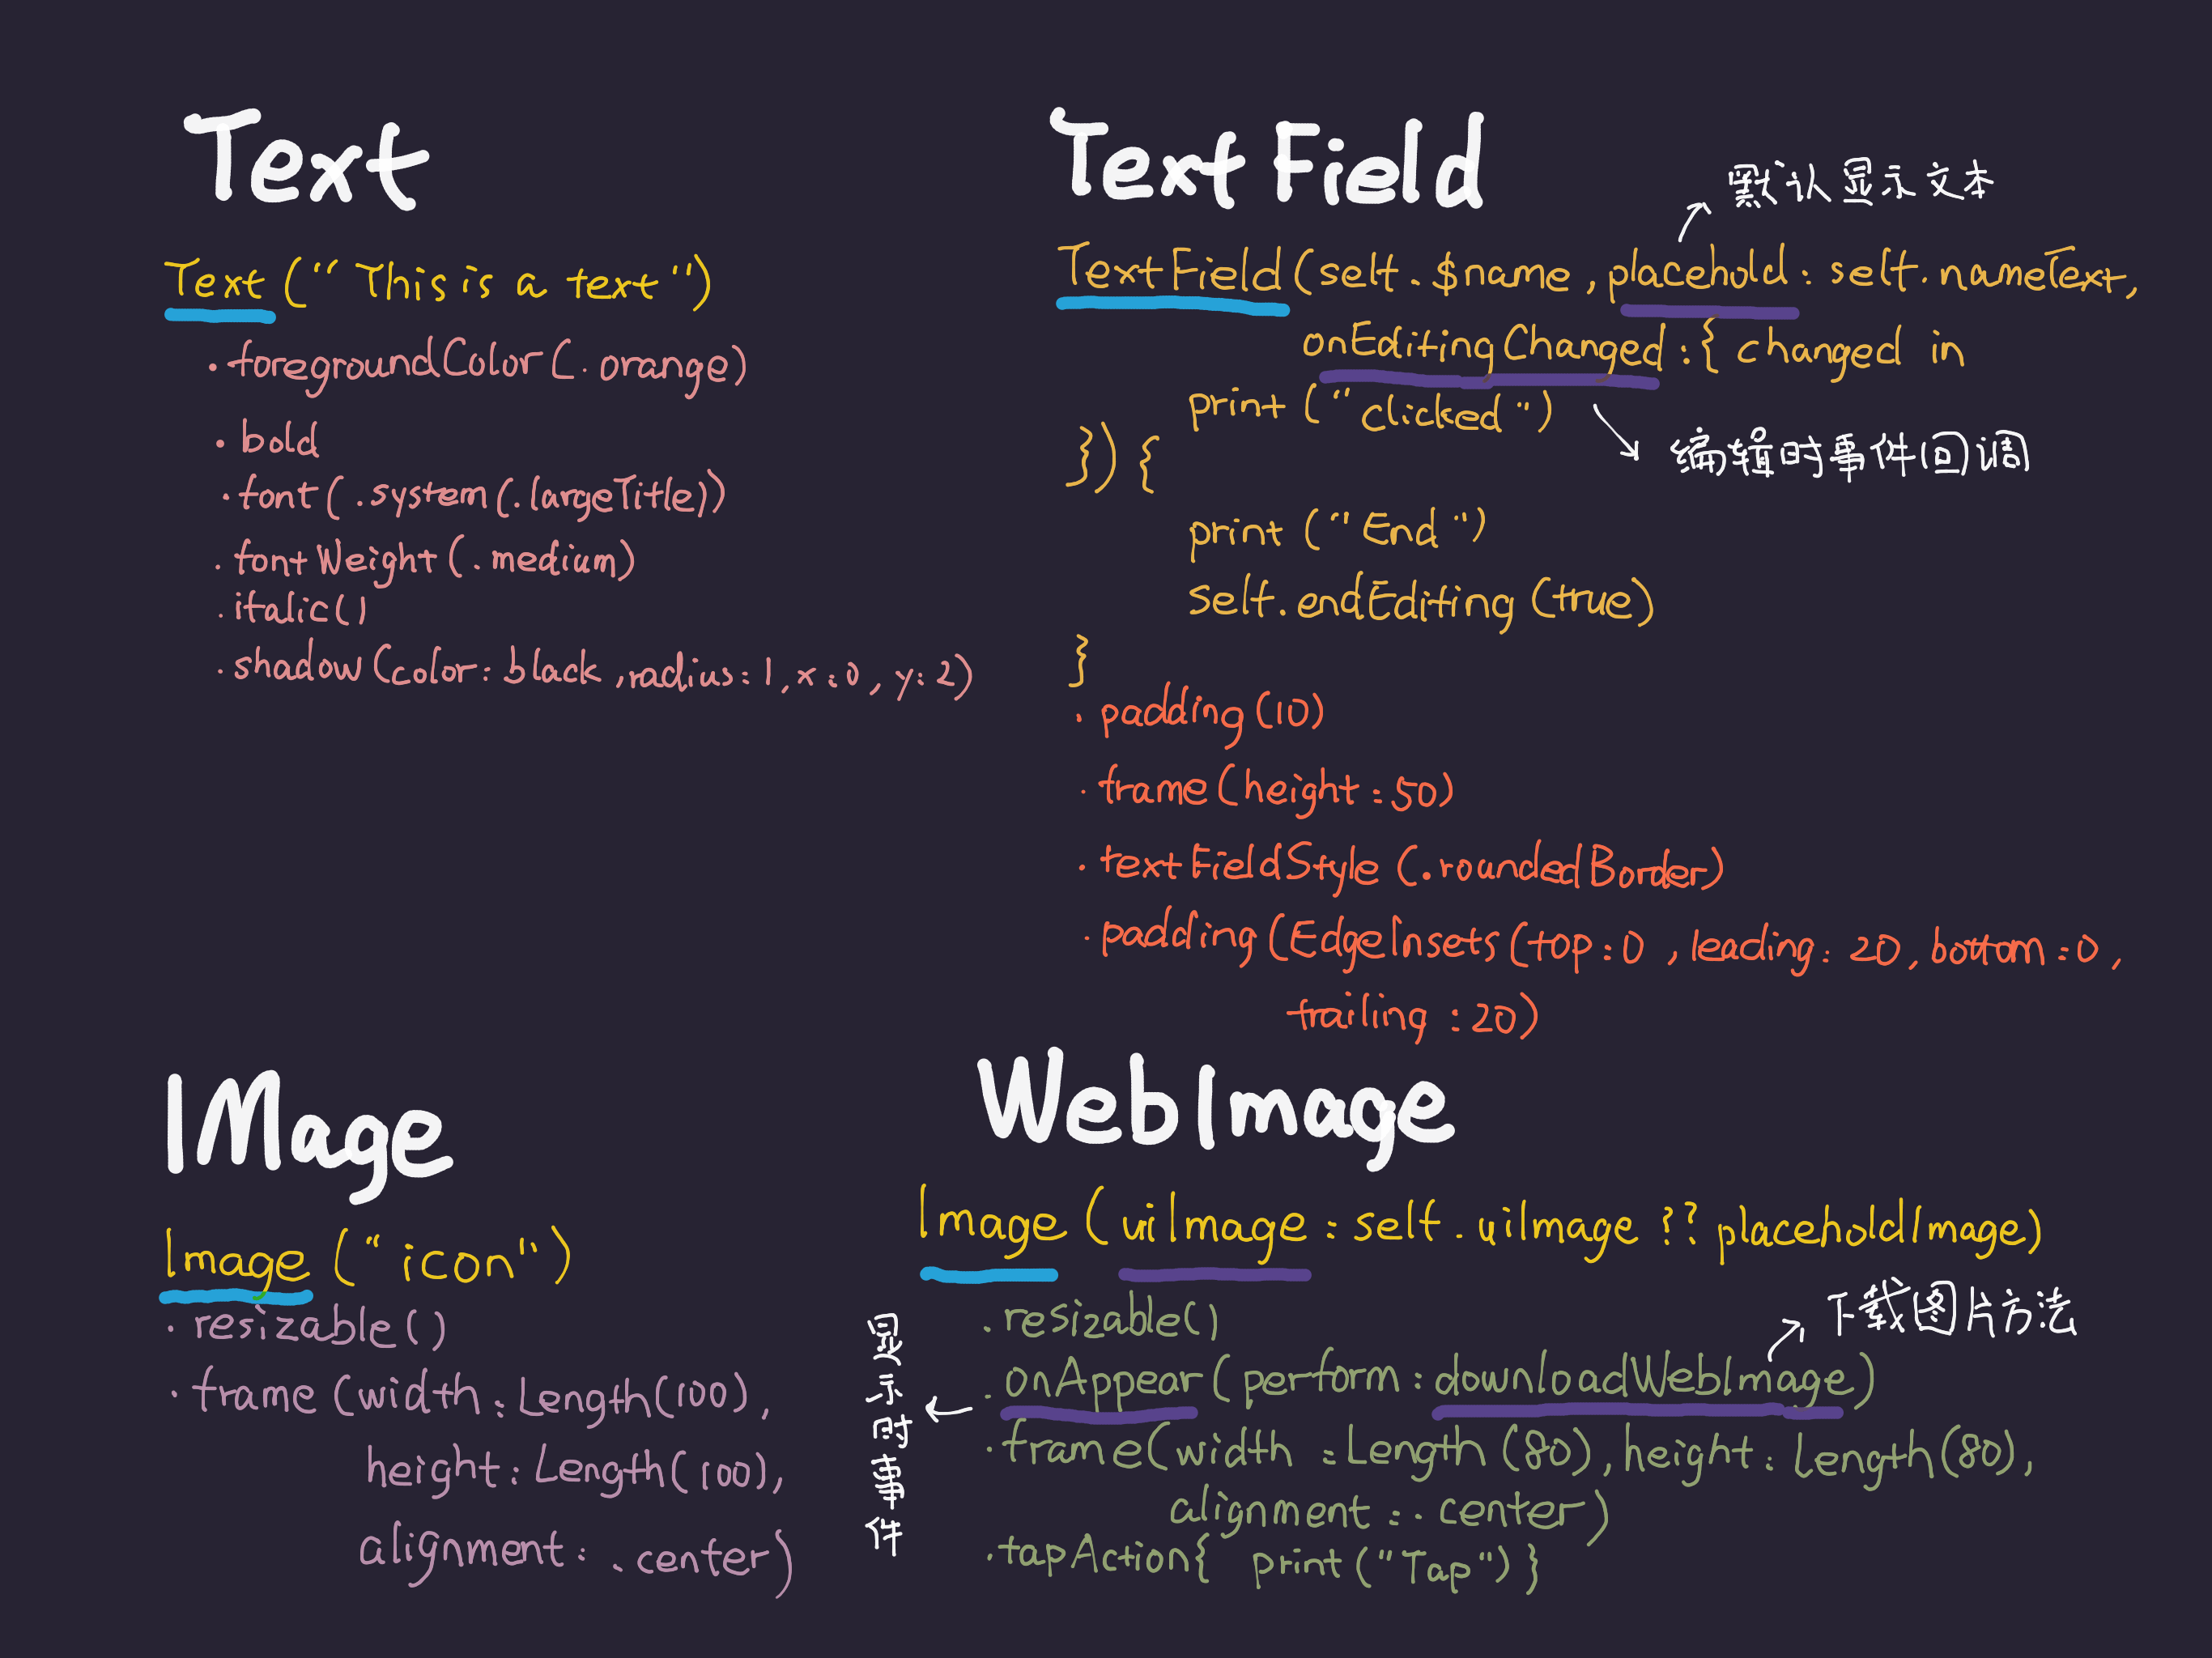 Text
Text ("This is a text")
.foregroundColor(.orange)
.bold
.font(.system(.largeTitle))
.fontWeight(.medium)
.italic()
.shadow(color:black,radius:1,x:0,y:2)
TextField
默认显示文本
TextField(self.$name,placehold:self.nameText,
onEditingChanged:{changed in
print("clicked")
编辑时事件回调
}){
print("End")
self.endEditing(true)
}
.padding(10)
.frame(height:50)
.textFieldStyle(.roundedBorder)
.padding(EdgeInsets(top:0,leading:20,bottom:0,
trailing:20)
IMage
Image("icon")
.resizable()
.frame(width:Length(100),
height:Length(100),
alignment:.center)
WebImage
Image(uiImage:self.uiImage ?? placeholdImage)
下载图片方法
.resizable()
.onAppear(perform:downloadWebImage)
显示时事件
.frame(width:Length(80),height:Length(80),
alignment:.center)
.tapAction{ print("Tap")}